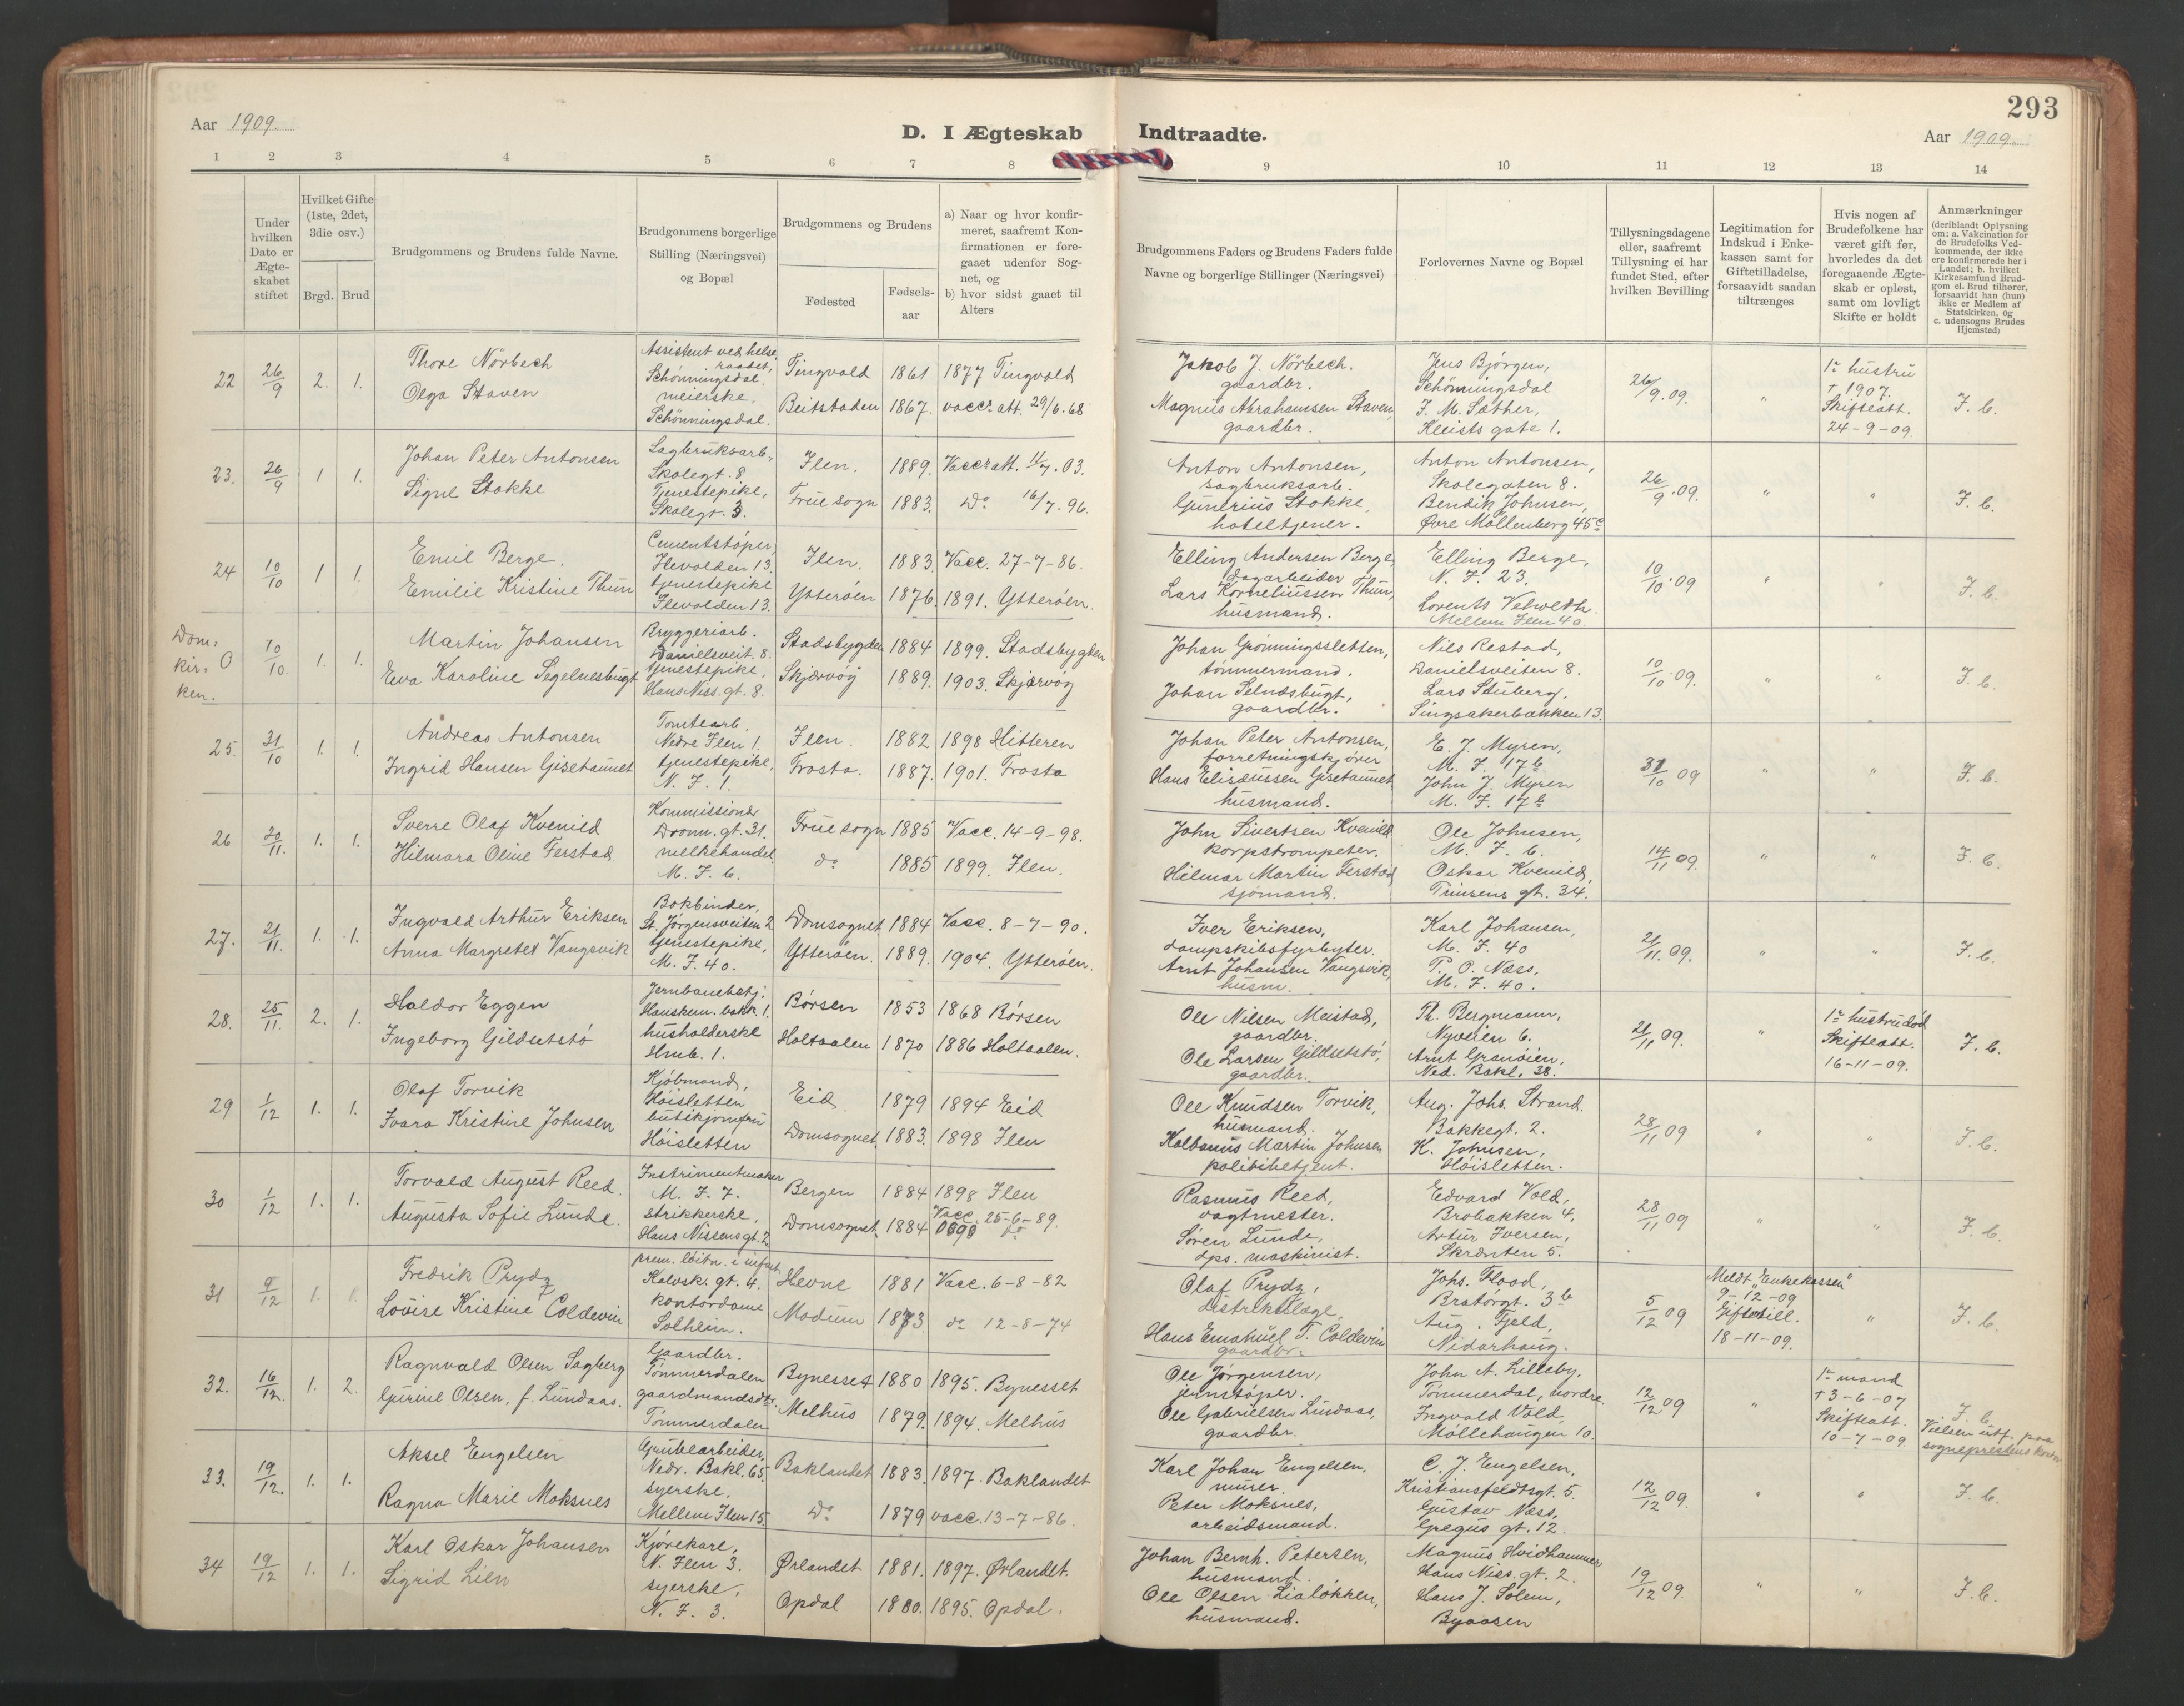 293
Aar 1909.
D. I Ægteskab Indtraadte.
Aar 1909.
1 2 3 4 5 6 7 8 9 10 11 12 13 14
Under hvilken Dato er Ægte-skabet stiftet
Hvilket Gifte (1ste, 2det, 3die osv.)
Brgd. Brud
Brudgommens og Brudens fulde Navne.
Brudgommens borgerlige Stilling (Næringsvei) og Bopæl
Brudgommens og Brudens
Fødested
Fødsels-aar
a) Naar og hvor konfir-meret, saafremt Kon-firmationen er fore-gaaet udenfor Sog-net, og
b) hvor sidst gaaet til Alters
Brudgommens Faders og Brudens Faders fulde Navne og borgerlige Stillinger (Næringsvei)
Forlovernes Navne og Bopæl
Tillysningsdagene eller, saafremt Tillysning ei har fundet Sted, efter hvilken Bevilling
Legitimation for Indskud i Enke-kassen samt for Giftetilladelse, forsaavidt saadan tiltrænges
Hvis nogen af Brudefolkene har været gift før, hvorledes da det foregaaende Ægte-skab er opløst, samt om lovligt Skifte er holdt
Anmærkninger (deriblandt Oplysning om: a. Vakcination for de Brudefolks Ved-kommende, der ikke ere konfirmerede her i Landet; b. hvilket Kirkesamfund Brud-gom el. Brud tilhører, forsaavidt han (hun) ikke er Medlem af Statskirken, og c. udensogns Brudes Hjemsted)
22 26/9 2. 1.
Thore Nörbech
Olga Staven
Assistent ved helse-raadet, Schönningsdal.
meierske, Schönningsdal.
Tingvold 1861 1877 Tingvold
Beitstaden 1867. vacc. att. 29/6.68
Jakob J. Nörbech. gaardbr.
Magnus Abrahamsen Staven, gaardbr.
Jens Bjørgen, Schönningsdal
J. M. Sæther, Kleists gate 1.
26/9.09.
1e hustru † 1907. Skifteatt. 24-9-09.
F. b.
23. 26/9 1 1.
Johan Peter Antonsen
Signe Stokke
Sagbruksarb., Skolegt. 8.
Tjenestepike, Skolegt. 3.
Ilen. 1889. Vacc. att. 11/7.03.
Frue sogn 1883. Do 16/7.96.
Anton Antonsen, sagbruksarb.
Gunerius Stokke, hoteltjener.
Anton Antonsen, Skolegaten 8.
Bendik Johnsen, Øvre Möllenberg 45c
26/9.09. " " F. b.
24 10/10 1 1.
Emil Berge.
Emilie Kristine Thun
Cementstöper, Ilevolden 13.
tjenestepike Ilevolden 13.
Ilen. 1883. Vacc. 27-7-86.
Ytterøen 1876. 1891. Ytterøen.
Elling Andersen Berge, Dagarbeider
Lars Korneliussen Thun, husmand.
Elling Berge, N. I. 23.
Lorents Mellem Ilen 40.
10/10.09 " " F. b.
Dom-kir-ken. 0 10/10. 1. 1.
Martin Johansen
Eva Karoline Segelnesbugt
Bryggeriarb. Danielsveit. 8.
tjenestepike, Hans Niss. gt. 8.
Stadsbygden 1884 1899. Stadsbygden
Skjærvöy 1889. 1903. Skjærvöy
Johan Grönningsletten, tømmermand.
Johan Selnæsbugt, gaardbr.
Nils Restad, Danielsveiten 8.
Lars Stuberg, Singsakerbakken 13.
10/10.09. " " F. b.
25. 31/10 1. 1.
Andreas Antonsen
Ingrid Hansen Gisetaunet
Tomtearb. Nedre Ilen 1.
tjenestepike, N. I. 1.
Ilen. 1882 1898 Hitteren
Frosta. 1887. 1901. Frosta
Johan Peter Antonsen, forretningskjører
Hans Eliseussen Gisetaunet husmand.
E. J. Myren, M. I. 17b
John J. Myren M. I. 17b
31/10 09 " " F. b.
26 20/11. 1. 1.
Sverre Olaf Kvenild
Hilmara Oline Ferstad
Kommissionær Dronn. gt. 31.
melkehandel M. I. 6.
Frue sogn 1885 Vacc. 14-9-98.
do 1885 1899. Ilen.
John Sivertsen Kvenild korpstrompeter.
Hilmar Martin Ferstad, sjømand.
Ole Johnsen, M. I. 6.
Oskar Kvenild, Prinsens gt. 34.
14/11 09. " " F. b.
27. 21/11. 1. 1.
Ingvald Arthur Eriksen
Anna Margrete Vangsvik
Bokbinder, St. Jørgensveiten 2
tjenestepike, M. I. 40.
Domsognet 1884 Vacc. 8-7-90.
Ytterøen. 1889. 1904. Ytterøen.
Iver Eriksen, dampskibsfyrbyter.
Arnt Johansen Vangsvik, husm.
Karl Johansen, M. I. 40
P. O. Næss, M. I. 40.
21/11.09. " " F. b.
28. 25/11. 2. 1.
Haldor Eggen
Ingeborg Gildsetstö
Jernbanebetj. Hanskem. bakk. 1.
husholderske Hmb. 1.
Børsen 1853 1868 Børsen
Holtaalen 1870 1886 Holtaalen.
Ole Nilsen Meistad, gaardbr.
Ole Larsen Gildsetstö, gaardbr.
Th. Bergmann, Nyveien 6.
Arnt Granöien, Ned. Bakl. 38.
21/11 09. " 1e hustru död Skifteatt. 16-11-09.
F. b.
29 1/12 1. 1.
Olaf Torvik
Ivara Kristine Johnsen
Kjöbmand, Höisletten
butikjomfru Höisletten
Eid 1879 1894 Eid
Domsognet. 1883. 1898 Ilen
Ole Knudsen Torvik, husmand.
Kolbanus Martin Johnsen politibetjent.
Aug. Johs. Strand. Bakkegt. 2.
K. Johnsen, Höisletten.
28/11 09 " " F. b.
30 1/12 1. 1.
Torvald August Reed.
Augusta Sofie Lunde.
Instrumentmaker M. I. 7.
strikkerske, Hans Nissensgt. 2
Bergen 1884 1898 Ilen
Domsognet. 1884 Vacc. 25-6-89.
Rasmus Reed, vagtmester.
Sören Lunde, dps. maskinist.
Edvard Vold, Brobakken 4.
Artur Iversen, Skrænten 5.
28/11 09 " " F. b.
31 9/12 1. 1.
Fredrik Prydz
Lovise Kristine Coldevin
prem. löitn. i infant. Kalvsk. gt. 4.
kontordame Solheim.
Hevne 1881 Vacc. 6-8-82
Modum 1873 do 12-8-74
Olaf Prydz, distriktslæge.
Hans Emanuel T. Coldevin gaardbr.
Johs. Flood, Bratørgt. 3b
Aug. Fjeld, Nidarhaug.
5/12 09
Meldt "Enkekassen" 9-12-09 Giftetill. 18-11-09.
" F. b.
32. 16/12. 1. 2.
Ragnvald Olsen Sagberg
Gurine Olsen, f. Lundaas.
Gaardbr. Tømmerdalen
gaardmandsdtr. Tømmerdalen
Bynesset 1880 1895. Bynesset
Melhus 1879. 1894. Melhus
Ole Jørgensen, jernstöper.
Ole Gabrielsen Lundaas, gaardbr.
John A. Lilleby. Tømmerdal, nordre.
Ingvald Vold, Möllehaugen 10.
12/12 09 "
1e mand † 3-6-07 Skifteatt. 10-7-09.
F. b. Vielsen utf. paa sogneprestens kontor
33. 19/12. 1. 1.
Aksel Engelsen
Ragna Marie Moksnes
Grubearbeider, Nedr. Bakl. 65.
syerske, Mellem Ilen 15.
Baklandet 1883. 1897. Baklandet
Do 1879 vacc. 13-7-86.
Karl Johan Engelsen, murer.
Peter Moksnes, arbeidsmand.
C. J. Engelsen, Kristiansfeldtsgt. 5.
Gustav Næss, Gregus gt. 12.
12/12 09. " " F. b.
34 19/12 1. 1.
Karl Oskar Johansen
Sigrid Lien
Kjørekarl, N. Ilen 3.
syerske, N. I. 3.
Ørlandet 1881. 1897. Ørlandet.
Opdal 1880. 1895. Opdal.
Johan Bernh. Petersen, husmand.
Ole Olsen Lialökken, husmand.
Magnus Hvidhammer Hans Niss. gt. 2.
Hans J. Solem, Byaasen
19/12 09. " " F. b.